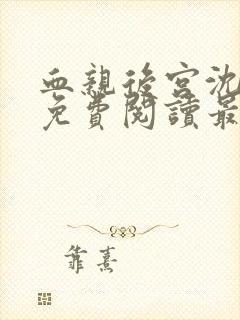 血親後宮沈
免費閱讀最
靠熹